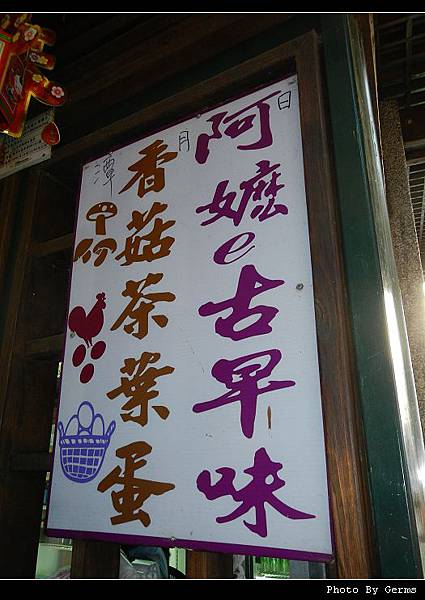 日月潭
阿嬤e古早味
香菇茶葉蛋
Photo By Germs